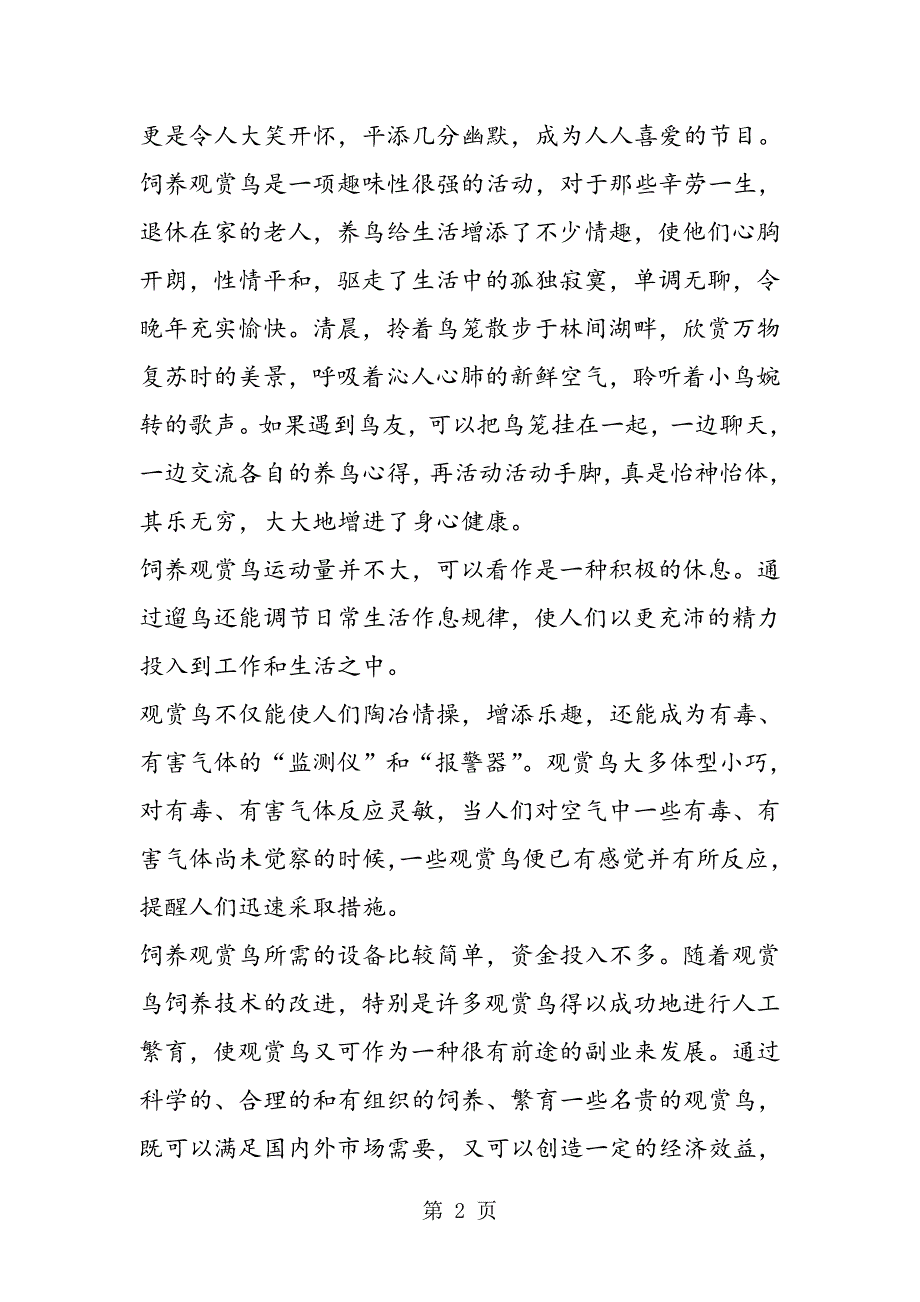 更是令人大笑开怀，平添几分幽默，成为人人喜爱的节目。
饲养观赏鸟是一项趣味性很强的活动，对于那些辛劳一生，
退休在家的老人，养鸟给生活增添了不少情趣，使他们心胸
开朗，性情平和，驱走了生活中的孤独寂寞，单调无聊，令
晚年充实愉快。清晨，拎着鸟笼散步于林间湖畔，欣赏万物
复苏时的美景，呼吸着沁人心肺的新鲜空气，聆听着小鸟婉
转的歌声。如果遇到鸟友，可以把鸟笼挂在一起，一边聊天，
一边交流各自的养鸟心得，再活动活动手脚，真是怡神怡体，
其乐无穷，大大地增进了身心健康。
饲养观赏鸟运动量并不大，可以看作是一种积极的休息。通
过遛鸟还能调节日常生活作息规律，使人们以更充沛的精力
投入到工作和生活之中。
观赏鸟不仅能使人们陶冶情操，增添乐趣，还能成为有毒、
有害气体的“监测仪”和“报警器”。观赏鸟大多体型小巧，
对有毒、有害气体反应灵敏，当人们对空气中一些有毒、有
害气体尚未觉察的时候，一些观赏鸟便已有感觉并有所反应，
提醒人们迅速采取措施。
饲养观赏鸟所需的设备比较简单，资金投入不多。随着观赏
鸟饲养技术的改进，特别是许多观赏鸟得以成功地进行人工
繁育，使观赏鸟又可作为一种很有前途的副业来发展。通过
科学的、合理的和有组织的饲养、繁育一些名贵的观赏鸟，
既可以满足国内外市场需要，又可以创造一定的经济效益，
第 2 页